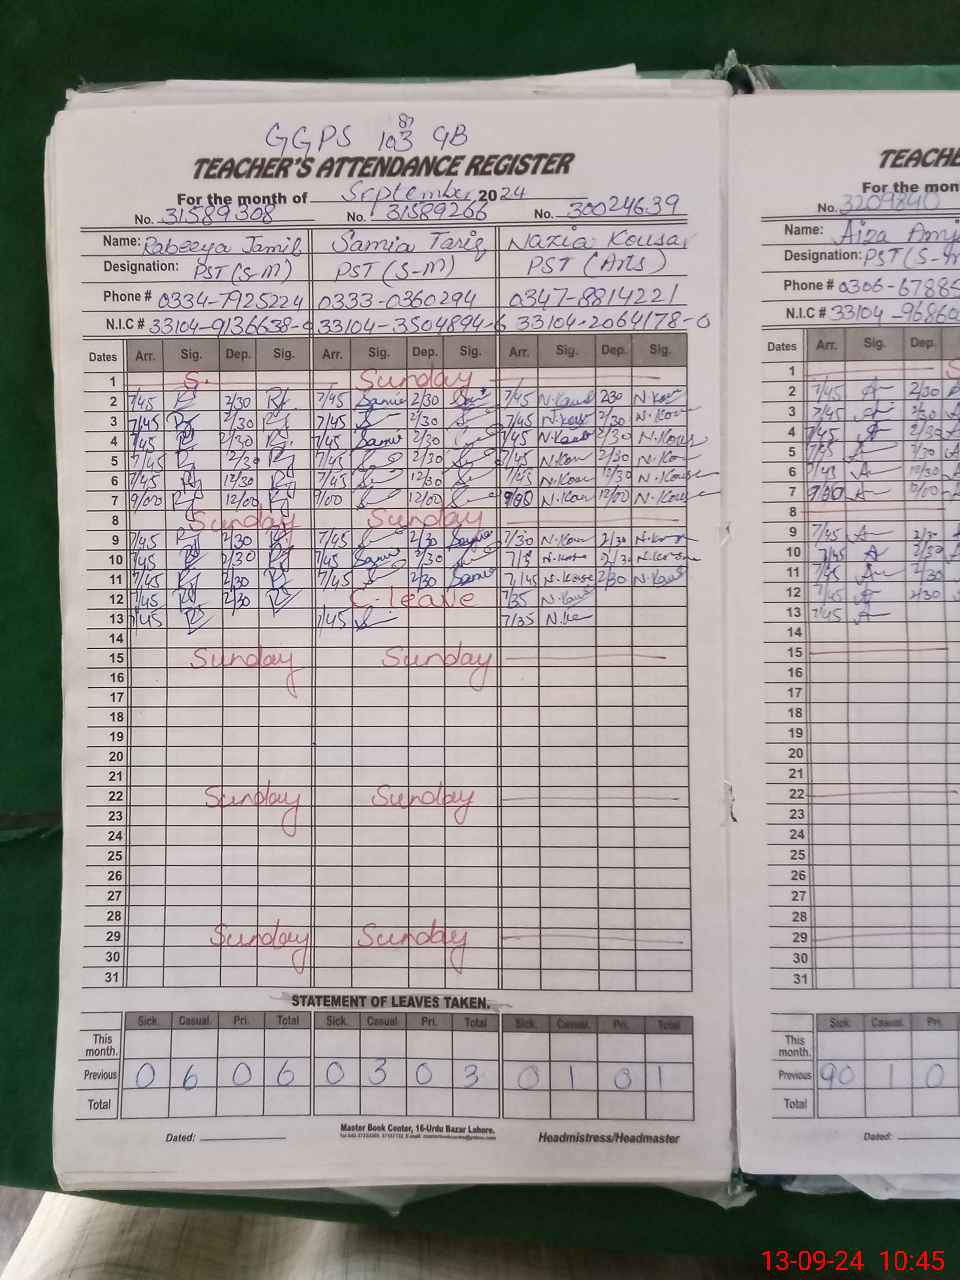 GGPS 103 GB
87
TEACHER'S ATTENDANCE REGISTER
For the month of September 2024
No. 31589308 No. 31589266 No. 30024639
Name: Rabeeya Jamil Samia Tariq Nazia Kousar
Designation: PST (S-M) PST (S-M) PST (Arts)
Phone # 0334-7925224 0333-0360294 0347-8814221
N.I.C # 33104-9136638- 33104-3504894-6 33104-2064178-0
Dates Arr. Sig. Dep. Sig. Arr. Sig. Dep. Sig. Arr. Sig. Dep. Sig.
1 S. Sunday
2 7/45 2/30 7/45 Samia 2/30 7/45 N.Kous 230 N.Kous
3 7/45 2/30 7/45 2/30 7/45 N.Kous 2/30 N.Kou
4 7/45 2/30 7/45 Samia 2/30 7/45 N.Kous 2/30 N.Kous
5 7/45 2/30 7/45 2/30 7/45 N.Kou 2/30 N.Ko
6 7/45 12/30 7/45 12/30 7/45 N.Kou 12/30 N.Kous
7 9/00 12/00 9/00 12/00 N.Kou 12/00 N.Kous
8 Sunday Sunday
9 7/45 2/30 7/45 2/30 Samia 7/30 N.Kou 2/30
10 7/45 2/30 7/45 Samia 2/30 2/30
11 7/45 2/30 7/45 2/30 Samia 7/45 N.Kous 2/30 N.Kous
12 7/45 2/30 C-leave 7/35 N.Kous
13 7/45 7/45 7/35 N.Ke
14
15 Sunday Sunday
16
17
18
19
20
21
22 Sunday Sunday
23
24
25
26
27
28
29 Sunday Sunday
30
31
STATEMENT OF LEAVES TAKEN.
Sick. Casual. Pri. Total Sick. Casual. Pri. Total Sick. Casual. Pri. Total
This month.
Previous 0 6 0 6 0 3 0 3 0 1 0 1
Total
Dated:
Master Book Center, 16-Urdu Bazar Lahore.
Headmistress/Headmaster
TEACHE
For the mon
No. 3209840
Name: Aiza Amj
Designation: PST (S-
Phone # 0306-6788
N.I.C # 33104-9686
Dates Arr. Sig. Dep.
1 S
2 7/45 A 2/30
3 7/45 2/30
4 7/45 A 2/30
5 7/45 A 2/30
6 7/45 A 12/30
7 A
8
9 7/45 A 2/30
10 7/45 A 2/30
11 7/45 A 2/30
12 7/45 A 2/30
13 7/45 A
14
15
16
17
18
19
20
21
22
23
24
25
26
27
28
29
30
31
Sick. Casual. Pri.
This month.
Previous 90 1 0
Total
Dated:
13-09-24 10:45